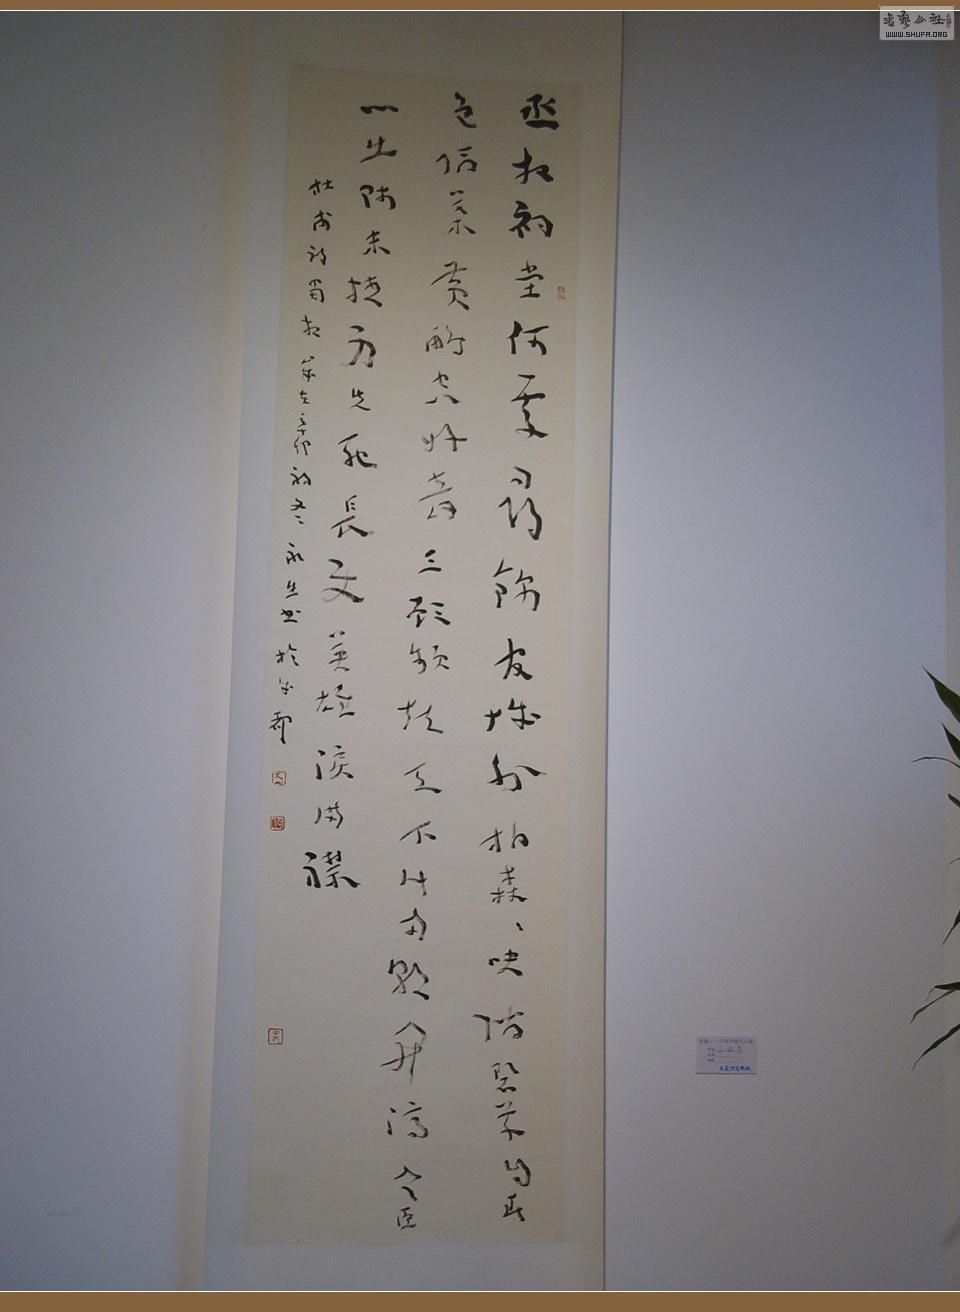 書藝公社
WWW.SHUFA.ORG
丞相祠堂何處尋錦官城外柏森〻映階碧草自春
色隔葉黃鸝空好音三顧頻煩天下計兩朝開濟老臣
心出師未捷身先死長使英雄淚滿襟
杜甫詩蜀相歲在辛卯初冬永生書於都